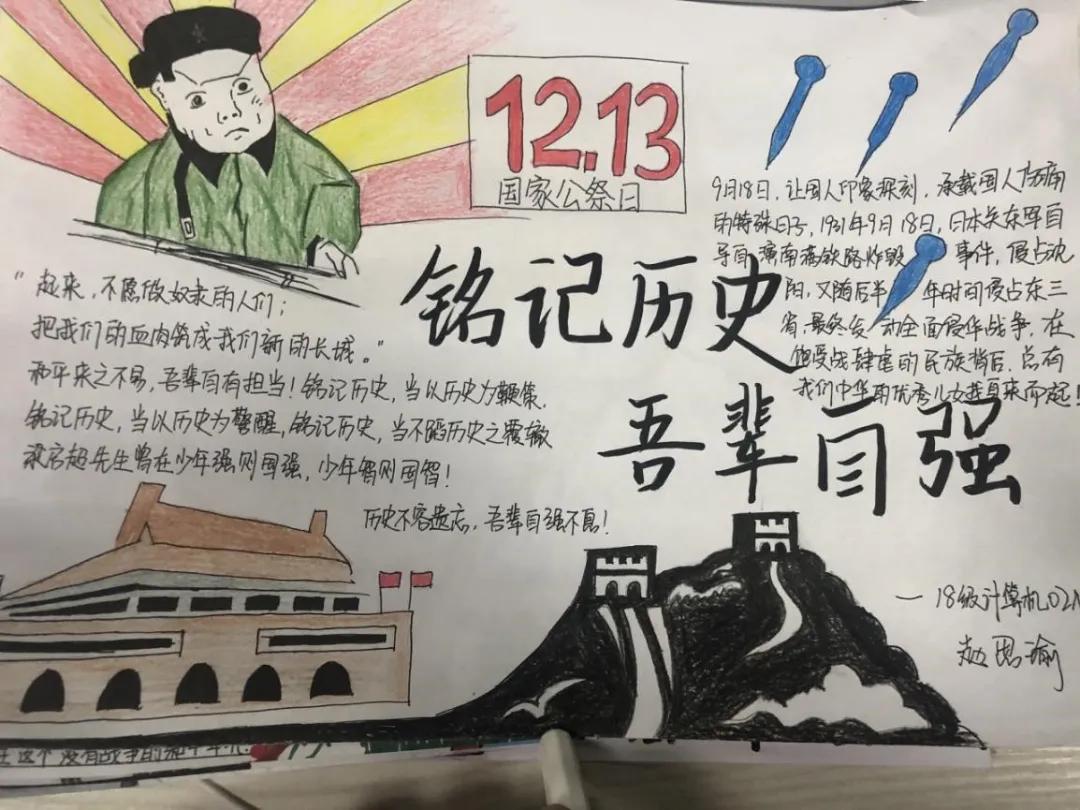 12.13
国家公祭日
铭记历史
吾辈自强
9月18日，让国人印象深刻，承载国人伤痛
的特殊日子，1931年9月18日，日本关东军自
导自演南满铁路炸毁 事件，侵占沈
阳，又随后半 年时间侵占东三
省，最终发 动全面侵华战争，在
饱受战肆虐的民族背后，总有
我们中华 优秀儿女 而起！
"起来，不愿做奴隶的人们；
把我们的血肉筑成我们新的长城。"
和平来之不易，吾辈自有担当！铭记历史，当以历史为鞭策，
铭记历史，当以历史为警醒，铭记历史，当不蹈历史之覆辙
梁启超先生曾在少年强则国强，少年智则国智！
历史不容遗忘，吾辈自强不息！
一 18级计算机02
赵思瑜
这个没有战争的和平年代